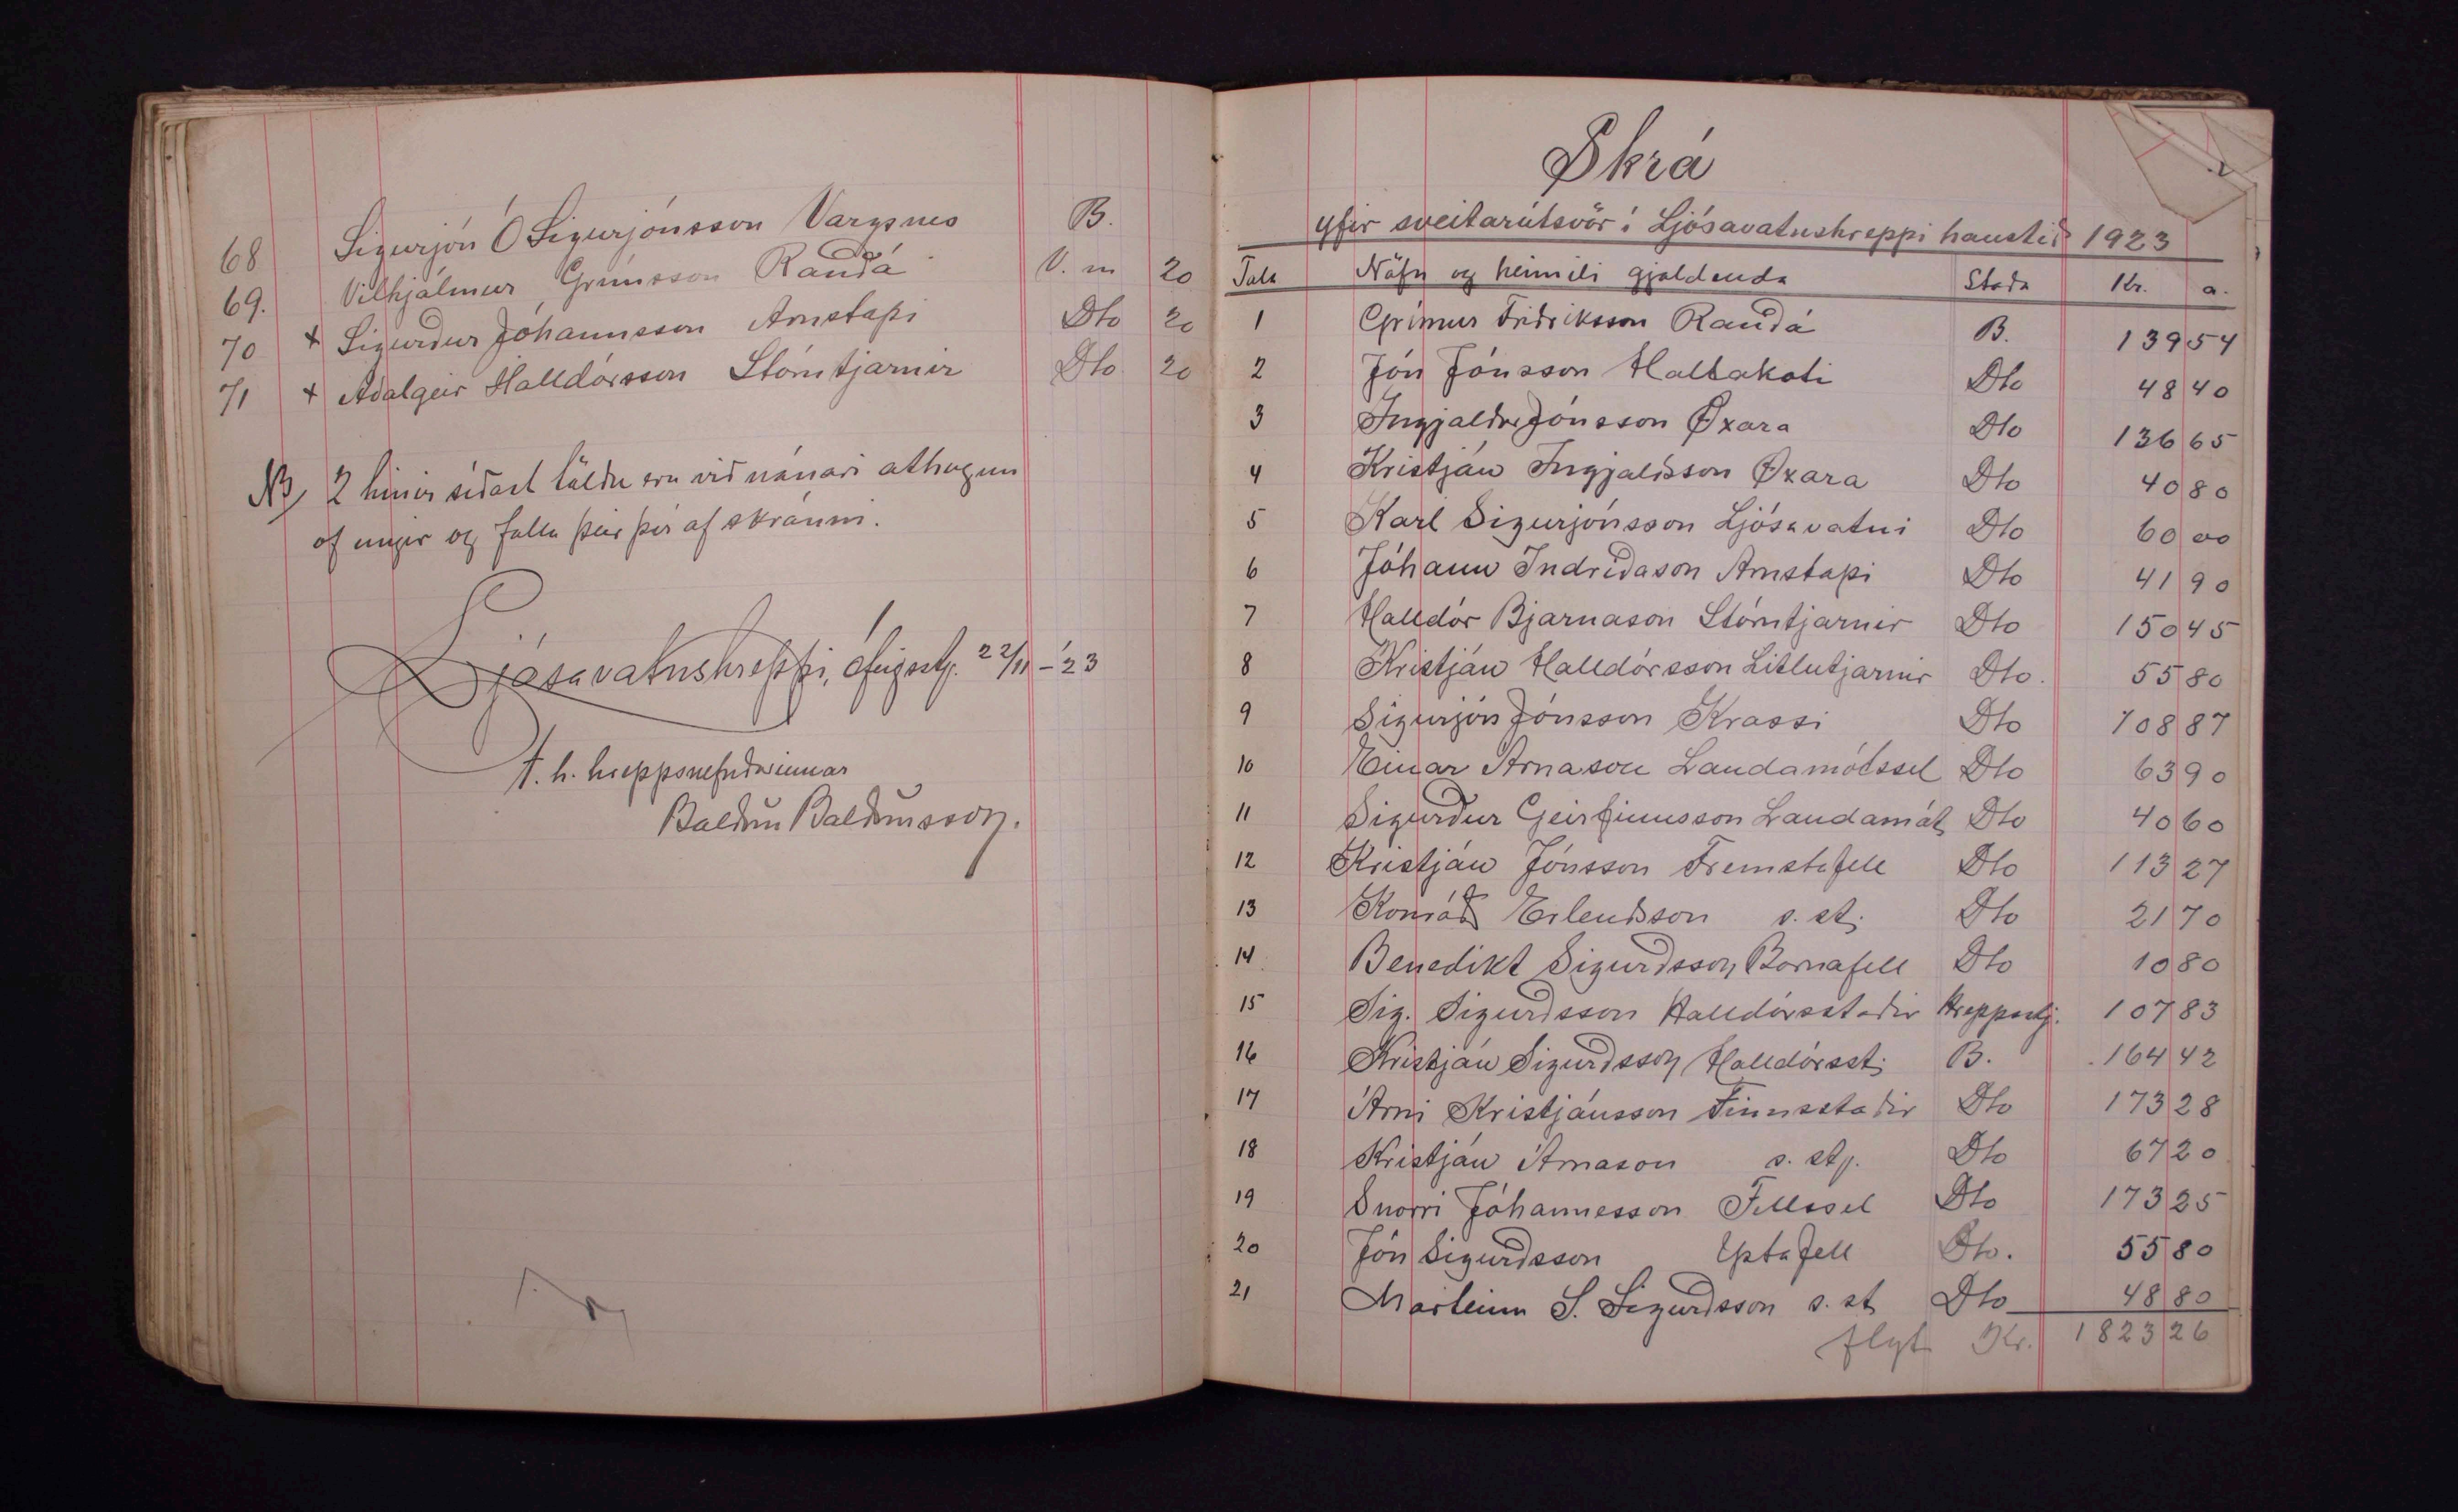 68 Sigurjón Ó Sigurjónsson Vargsnes B.
69. Vilhjálmur Grímsson Rauðá V. m 20
70 + Sigurður Jóhannsson Arnstapi Dto 20
71 + Aðalgeir Halldórsson Stórutjarnir Dto 20
NB/ 2 hinir síðast töldu eru við nánari athugun
of ungir og falla þeir því af skránni.
Ljósavatnshreppi, 22/11 - '23
f. h. hreppsnefndarinnar
Baldvin Baldvinsson.
Skrá
yfir sveitarútsvör í Ljósavatnshreppi haustið 1923
Tala Nöfn og heimili gjaldenda Staða Kr. a.
1 Grímur Friðriksson Rauðá B. 139 54
2 Jón Jónsson Hallakoti Dto 48 40
3 Ingjaldur Jónsson Øxara Dto 136 65
4 Kristján Ingjaldsson Øxara Dto 40 80
5 Karl Sigurjónsson Ljósavatni Dto 60 00
6 Jóhann Indriðason Arnstapi Dto 41 90
7 Halldór Bjarnason Stórutjarnir Dto 150 45
8 Kristján Halldórsson Litlutjarnir Dto. 55 80
9 Sigurjón Jónsson Krossi Dto 108 87
10 Einar Árnason Landamótssel Dto 63 90
11 Sigurður Geirfinnsson Landamót Dto 40 60
12 Kristján Jónsson Fremstafell Dto 113 27
13 Konráð Erlendsson s. st. Dto 21 70
14 Benedikt Sigurðsson Barnafell Dto 10 80
15 Sig. Sigurðsson Halldórsstaðir Hreppstj. 107 83
16 Kristján Sigurðsson Halldórsst. B. 164 42
17 Árni Kristjánsson Finnsstaðir Dto 173 28
18 Kristján Árnason s. st. Dto 67 20
19 Snorri Jóhannesson Fellssel Dto 173 25
20 Jón Sigurðsson Ystafell Dto. 55 80
21 Marteinn S. Sigurðsson s. st Dto 48 80
flyt Kr. 1823 26